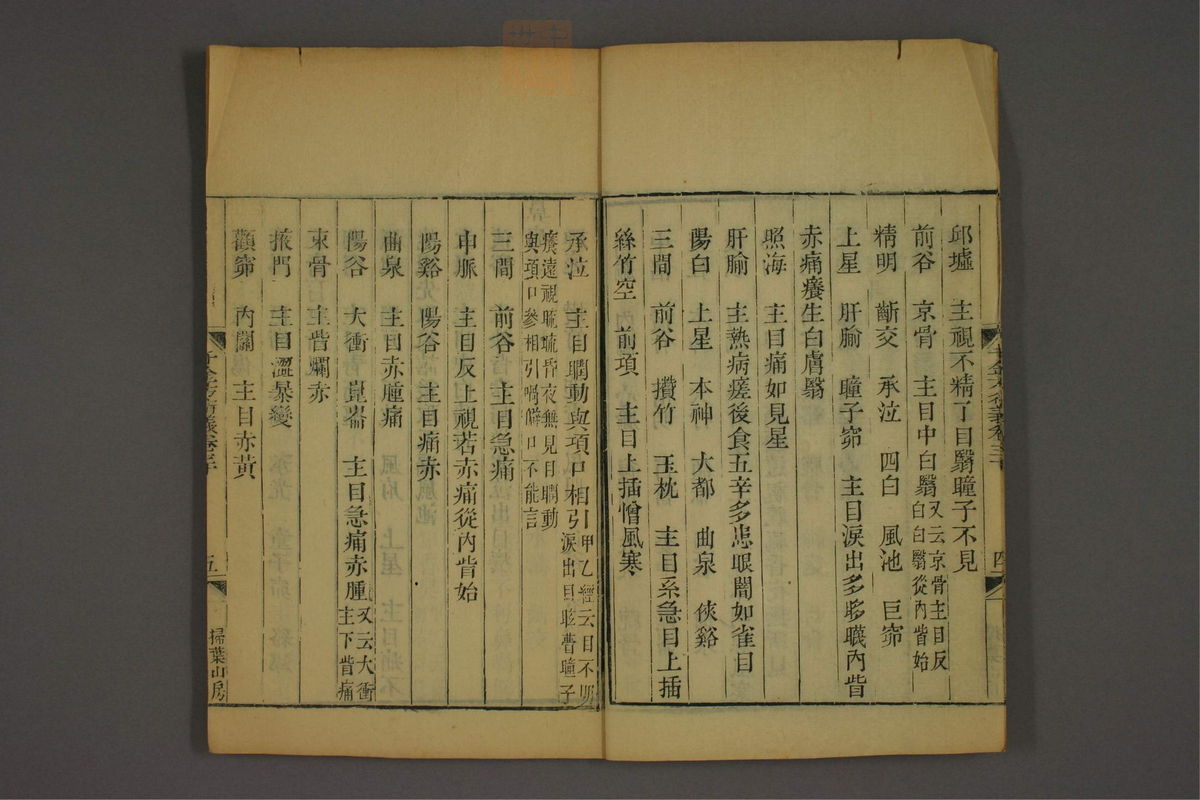 邱墟　主視不精了目翳瞳子不見
前谷　京骨　主目中白翳又云京骨主目反白白翳從內眥始
精明　齗交　承泣　四白　風池　巨窌
上星　肝腧　瞳子窌　主目淚出多眵䁾內眥
赤痛癢生白膚翳
照海　主目痛如見星
肝腧　主熱病瘥後食五辛多患眼闇如雀目
陽白　上星　本神　大都　曲泉　俠谿
三間　前谷　攢竹　玉枕　主目系急目上插
絲竹空　前項　主目上插憎風寒
承泣　主目瞤動與項口相引甲乙經云目不明淚出目眵瞢瞳子
癢遠視䀮䀮昏夜無見目瞤動與項口參相引喎僻口不能言
三間　前谷　主目急痛
申脈　主目反上視若赤痛從內眥始
陽谿　陽谷　主目痛赤
曲泉　主目赤腫痛
陽谷　大衝　崑崙　主目急痛赤腫又云大衝主下眥痛
束骨　主眥爛赤
掖門　主目澀暴變
顴窌　內關　主目赤黃
五
掃葉山房